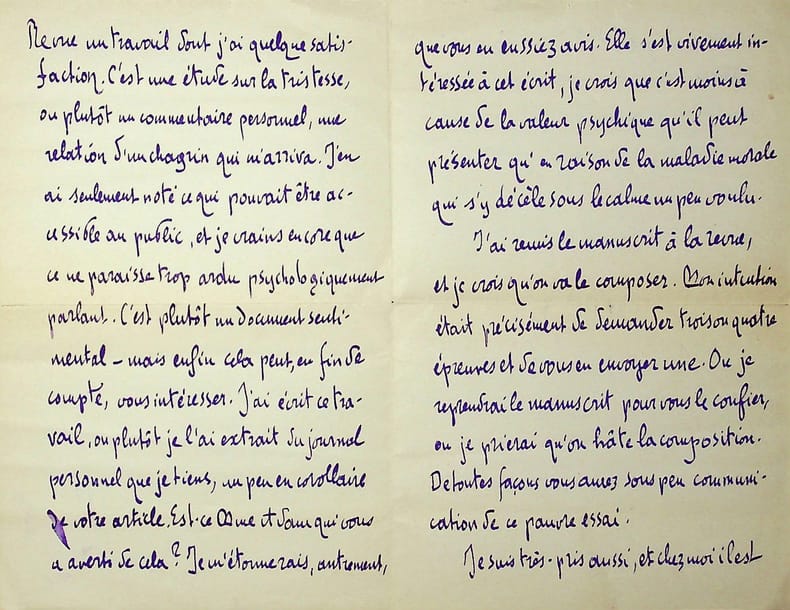 Revue un travail dont j'ai quelque satis-
faction. C'est une étude sur la tristesse,
ou plutôt un commentaire personnel, une
relation d'un chagrin qui m'arriva. J'en
ai seulement noté ce qui pouvait être ac-
cessible au public, et je crains encore que
ce ne paraisse trop ardu psychologiquement
parlant. C'est plutôt un document senti-
mental – mais enfin cela peut, en fin de
compte, vous intéresser. J'ai écrit ce tra-
vail, ou plutôt je l'ai extrait du journal
personnel que je tiens, un peu en corollaire
de votre article. Est-ce Mme qui vous
a averti de cela? Je m'étonnerais, autrement,
que vous en eussiez avis. Elle s'est vivement in-
téressée à cet écrit, je crois que c'est moins à
cause de la valeur psychique qu'il peut
présenter qu'en raison de la maladie morale
qui s'y décèle sous le calme un peu voulu.
J'ai remis le manuscrit à la revue,
et je crois qu'on va le composer. Mon intention
était précisément de demander trois ou quatre
épreuves et de vous en envoyer une. Ou je
reprendrai le manuscrit pour vous le confier,
ou je prierai qu'on hâte la composition.
De toutes façons vous aurez sous peu communi-
cation de ce pauvre essai.
Je suis très-pris aussi, et chez moi il est